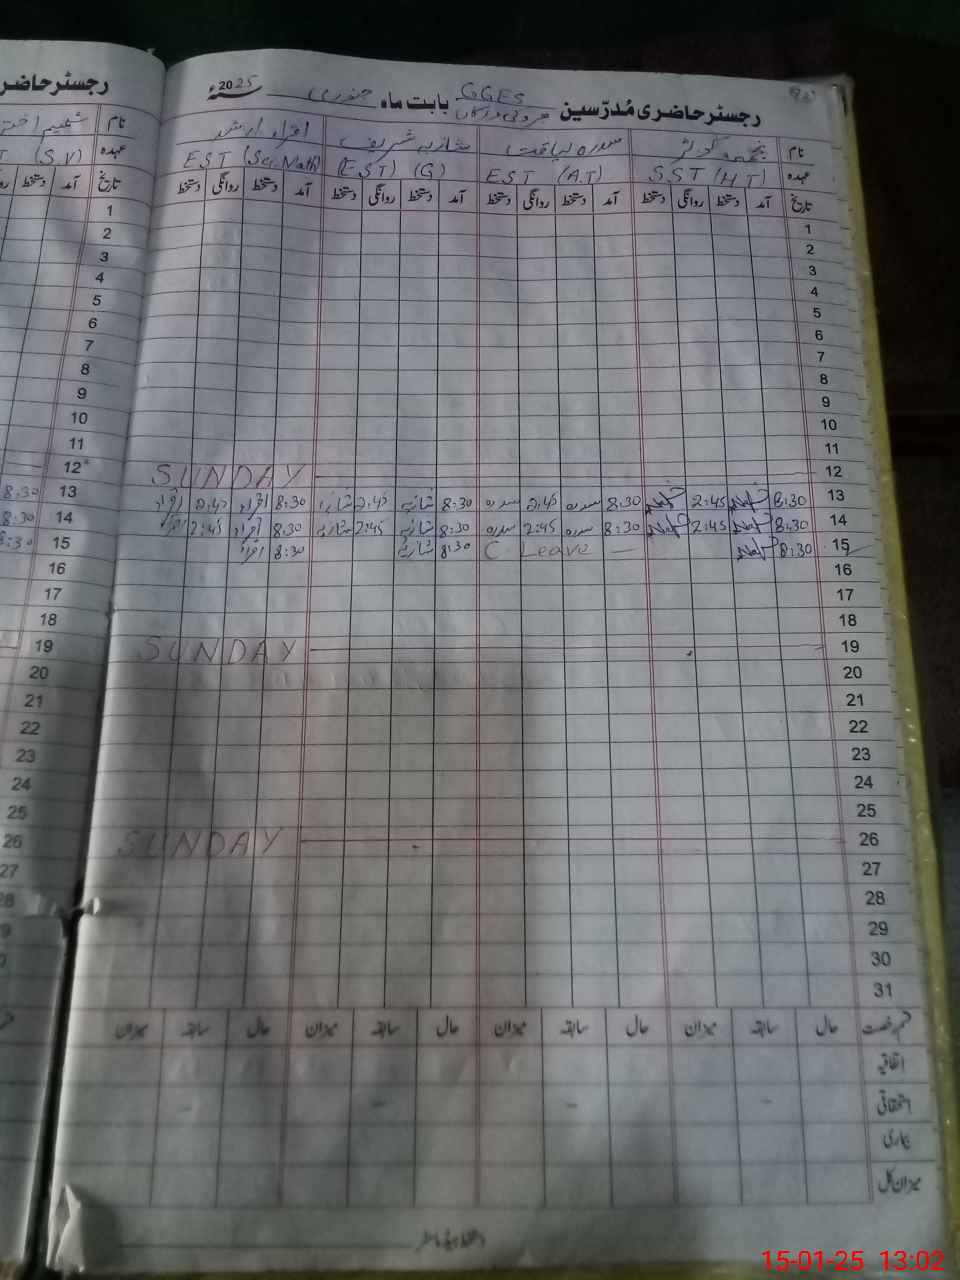 رجسٹر حاضری مُدرّسین GGES بابت ماہ جنوری سنہ 2025ء
نام نجمہ کوثر سدرہ لیاقت شازیہ شریف اقراء ارشد
عہدہ SST (H T) EST (A.T) (EST) (G) EST (Sci-Math)
تاریخ آمد دستخط روانگی دستخط آمد دستخط روانگی دستخط آمد دستخط روانگی دستخط آمد دستخط روانگی دستخط
1
2
3
4
5
6
7
8
9
10
11
12 SUNDAY
13 8:30 2:45 8:30 سدرہ 2:45 سدرہ 8:30 شازیہ 2:45 شازیہ 8:30 اقراء 2:45 اقراء
14 8:30 2:45 8:30 سدرہ 2:45 سدرہ 8:30 شازیہ 2:45 شازیہ 8:30 اقراء 2:45 اقراء
15 8:30 C Leave 8:30 شازیہ 8:30 اقراء
16
17
18
19 SUNDAY
20
21
22
23
24
25
26 SUNDAY
27
28
29
30
31
قسم رخصت حال سابقہ میزان حال سابقہ میزان حال سابقہ میزان حال سابقہ میزان
اتفاقیہ
استحقاقی
بیماری
میزان کل
دستخط ہیڈ ماسٹر
رجسٹر حاضری
نام شمیم اختر
عہدہ (S.V)
تاریخ آمد دستخط
1
2
3
4
5
6
7
8
9
10
11
12
13 8:30
14 8:30
15 8:30
16
17
18
19
20
21
22
23
24
25
26
27
28
15-01-25 13:02